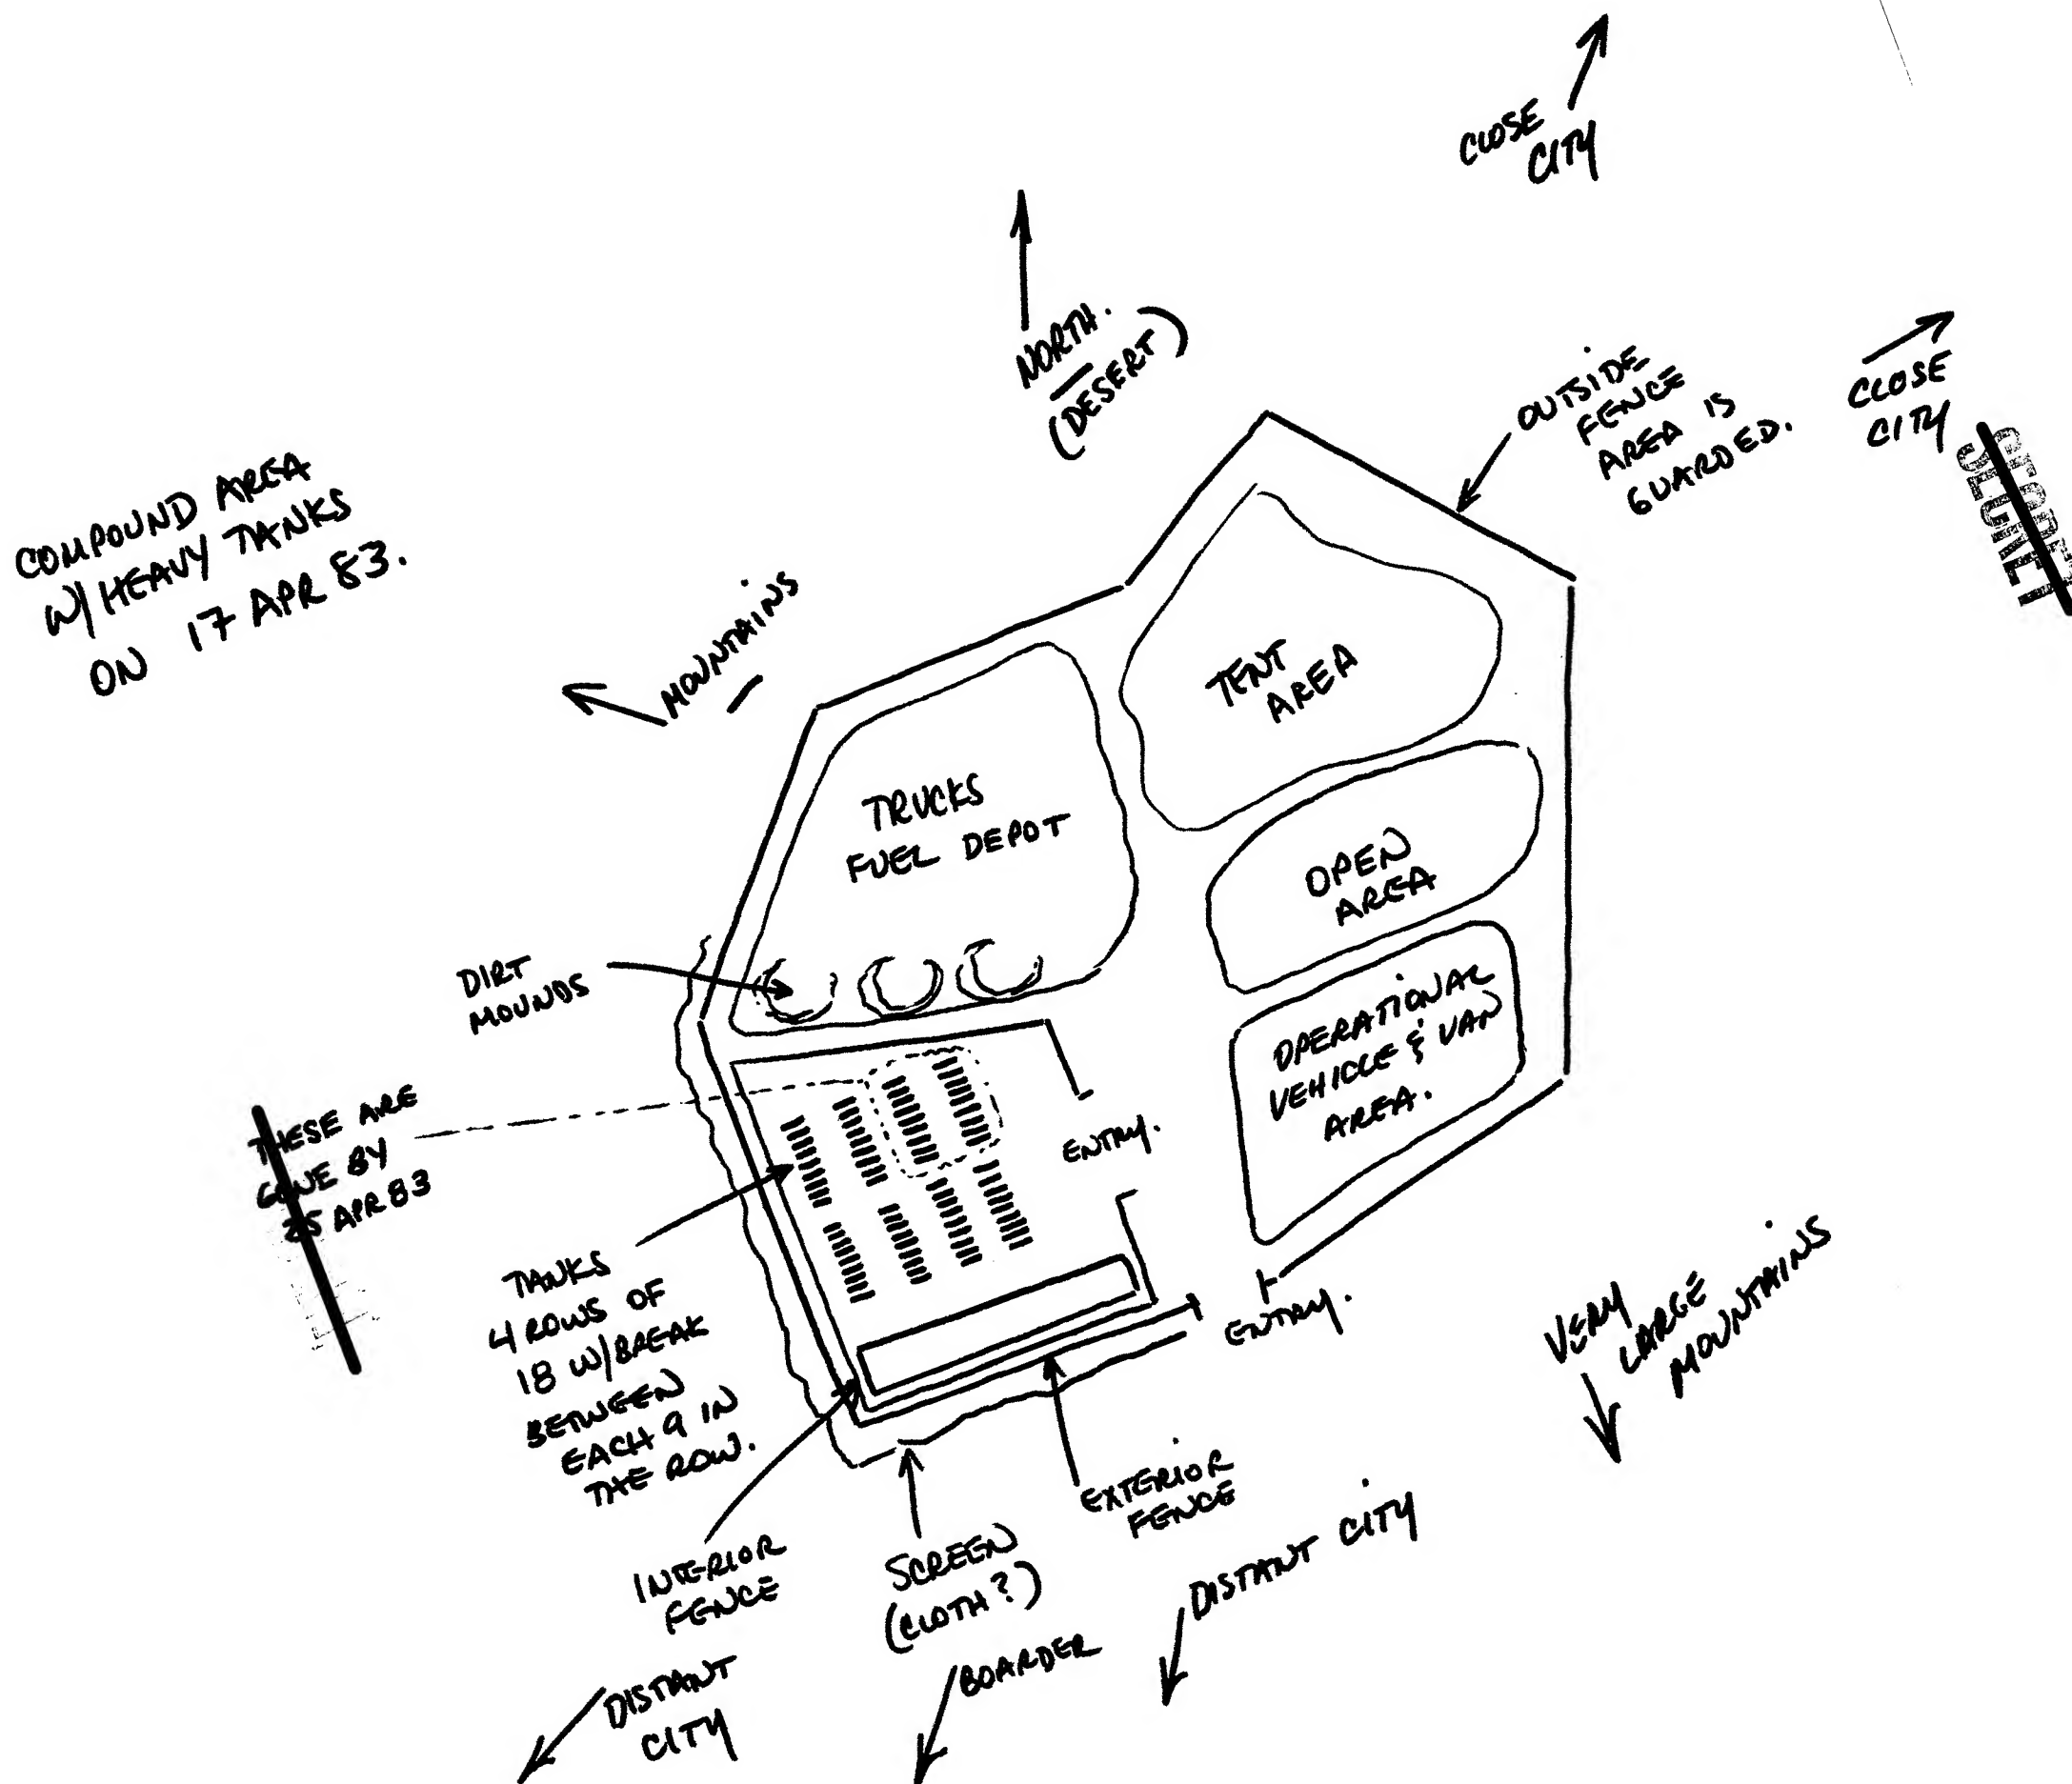 CLOSE
CITY
NORTH.
(DESERT)
OUTSIDE
FENCE
AREA IS
GUARDED.
CLOSE
CITY
SECRET
COMPOUND AREA
W/ HEAVY TANKS
ON 17 APR 83.
MOUNTAINS
TENT
AREA
TRUCKS
FUEL DEPOT
OPEN
AREA
DIRT
MOUNDS
OPERATIONAL
VEHICLE & VAN
AREA.
THESE ARE
GONE BY
25 APR 83
ENTRY.
TANKS
4 ROWS OF
18 W/ BREAK
BETWEEN
EACH 9 IN
THE ROW.
ENTRY.
VERY
LARGE
MOUNTAINS
INTERIOR
FENCE
SCREEN
(CLOTH?)
EXTERIOR
FENCE
DISTANT CITY
DISTANT
CITY
BOARDER